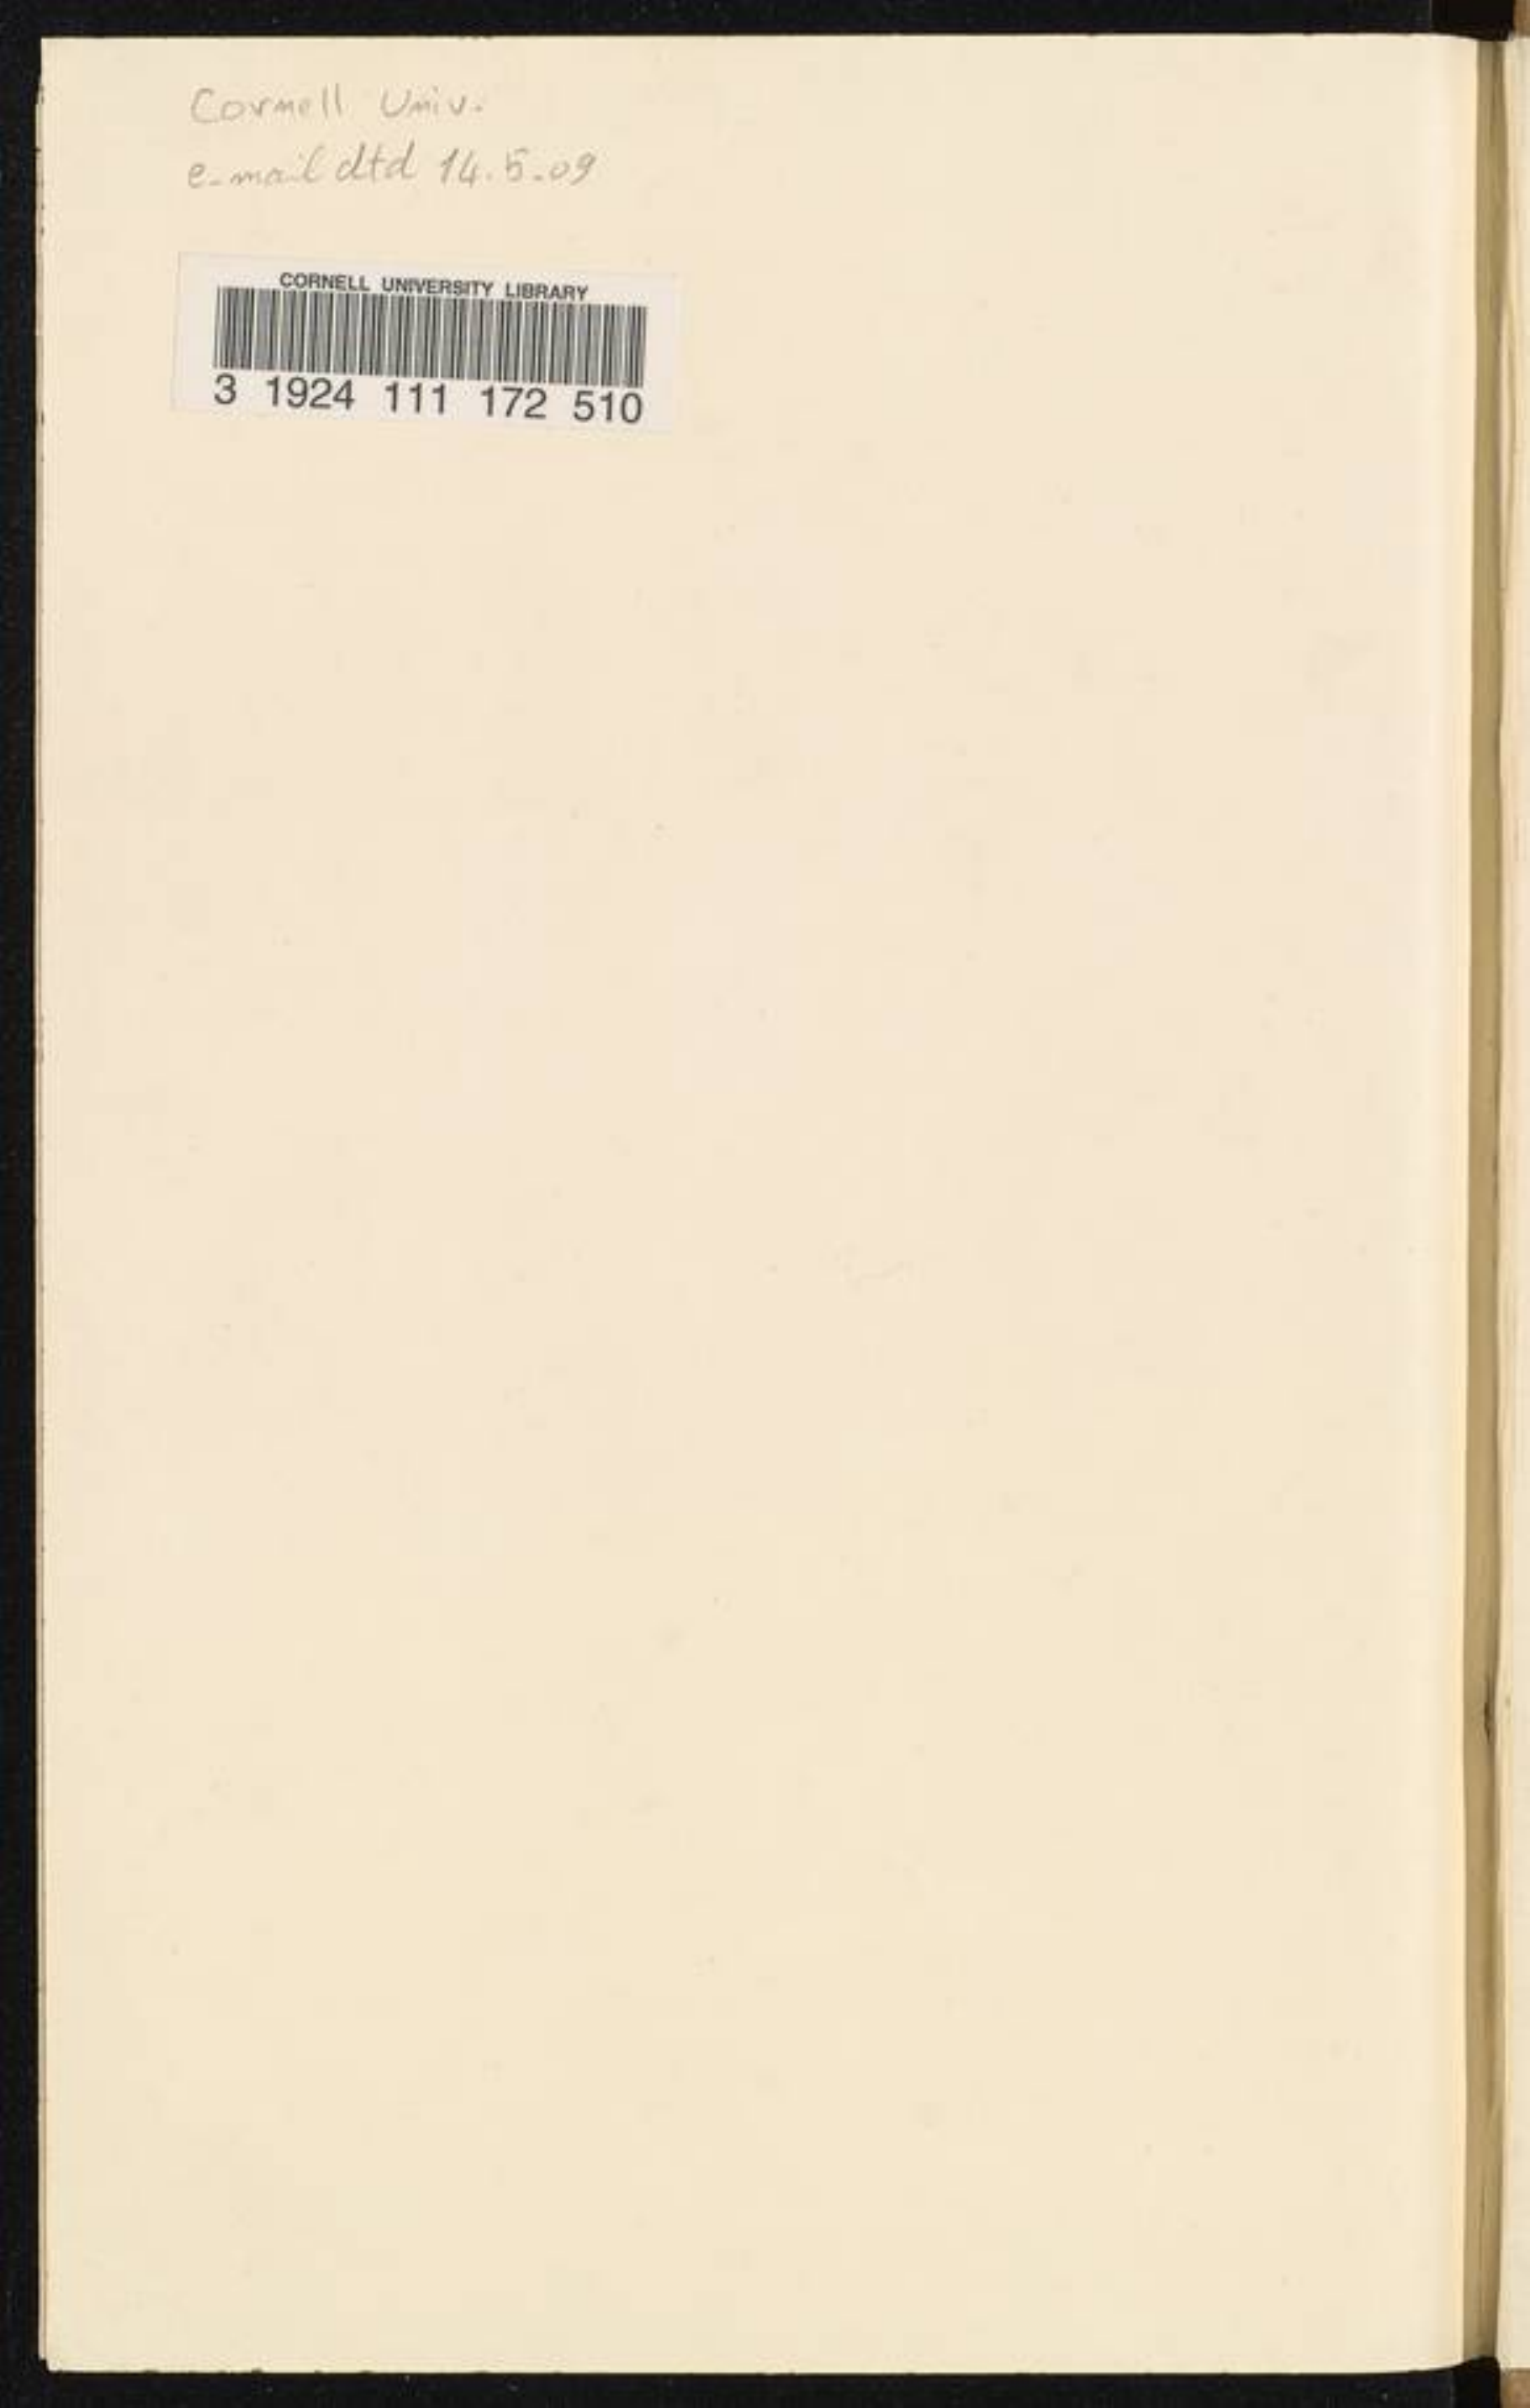 Cornell Univ.
e-mail dtd 14.5.09
CORNELL UNIVERSITY LIBRARY
3 1924 111 172 510